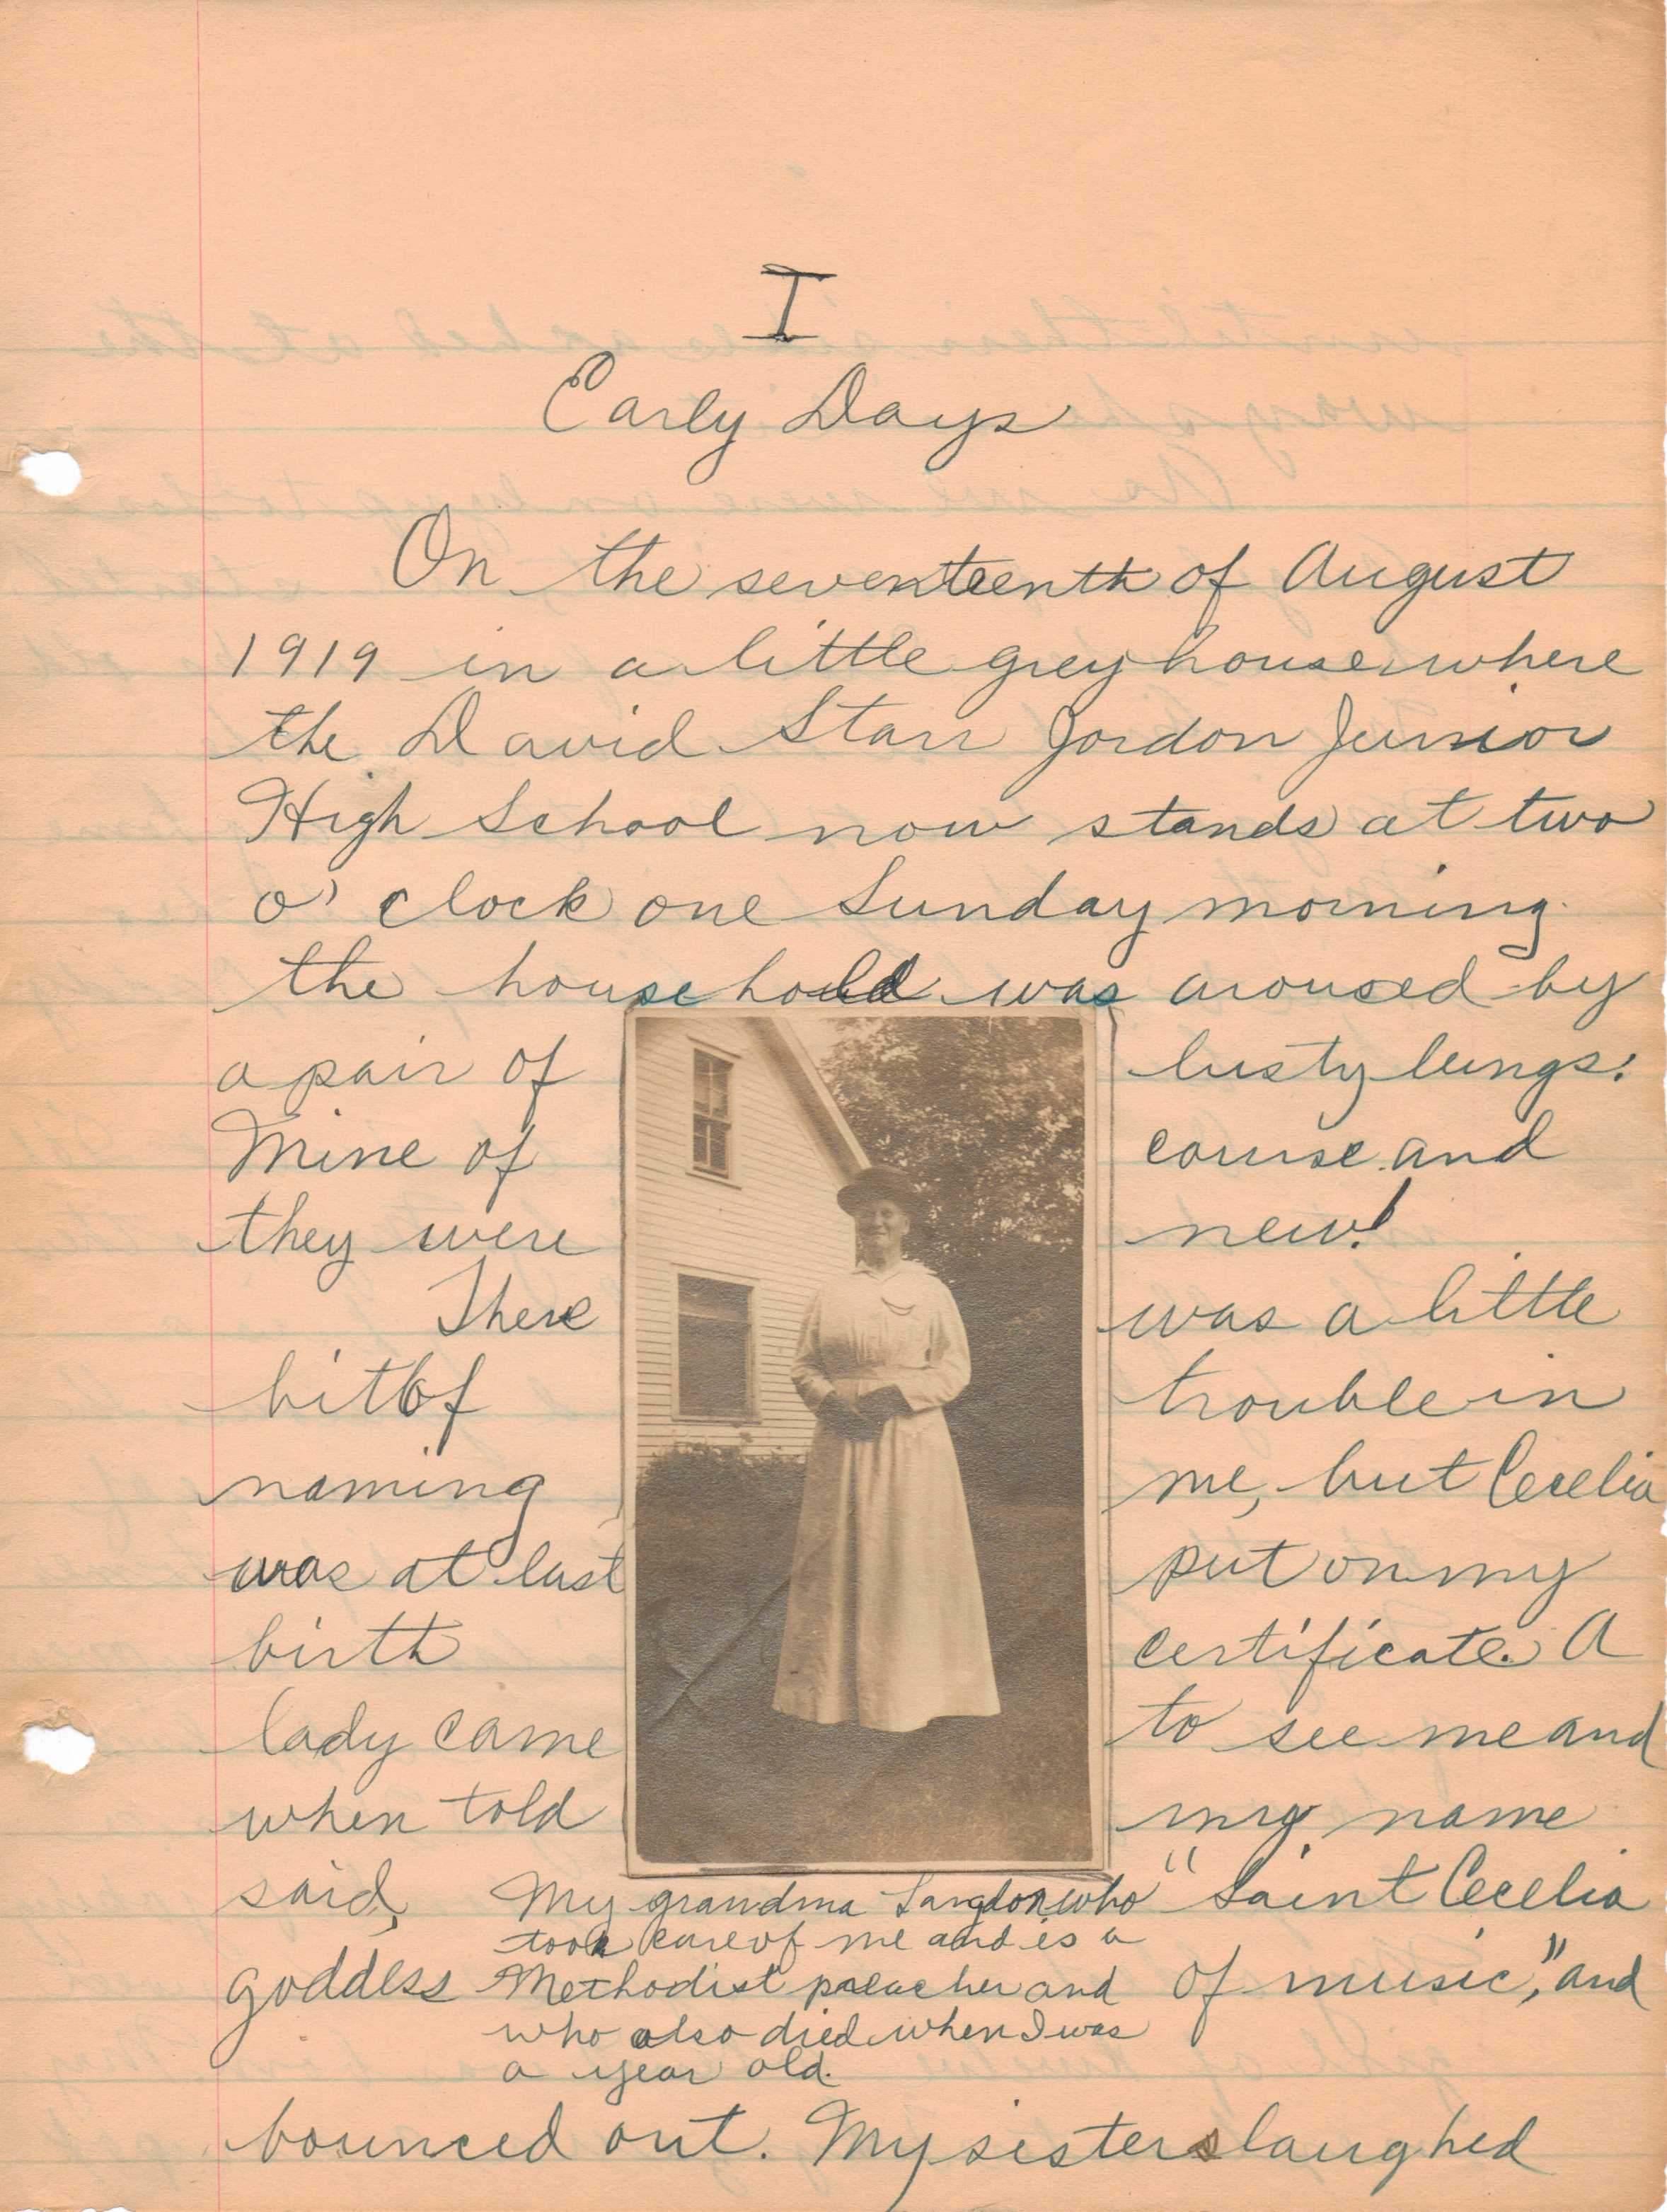 I
Early Days
On the seventeenth of August
1919 in a little grey house where
the David Starr Jordon Junior
High School now stands at two
o' clock one Sunday morning
the household was aroused by
a pair of lusty lungs.
Mine of course and
they were new!
There was a little
bit of trouble in
naming me, but Cecelia
was at last put on my
birth certificate. A
lady came to see me and
when told my name
said, "Saint Cecelia
goddess of music," and
My grandma Langdon who
took care of me and is a
Methodist preacher and
who also died when I was
a year old.
bounced out. My sisters laughed